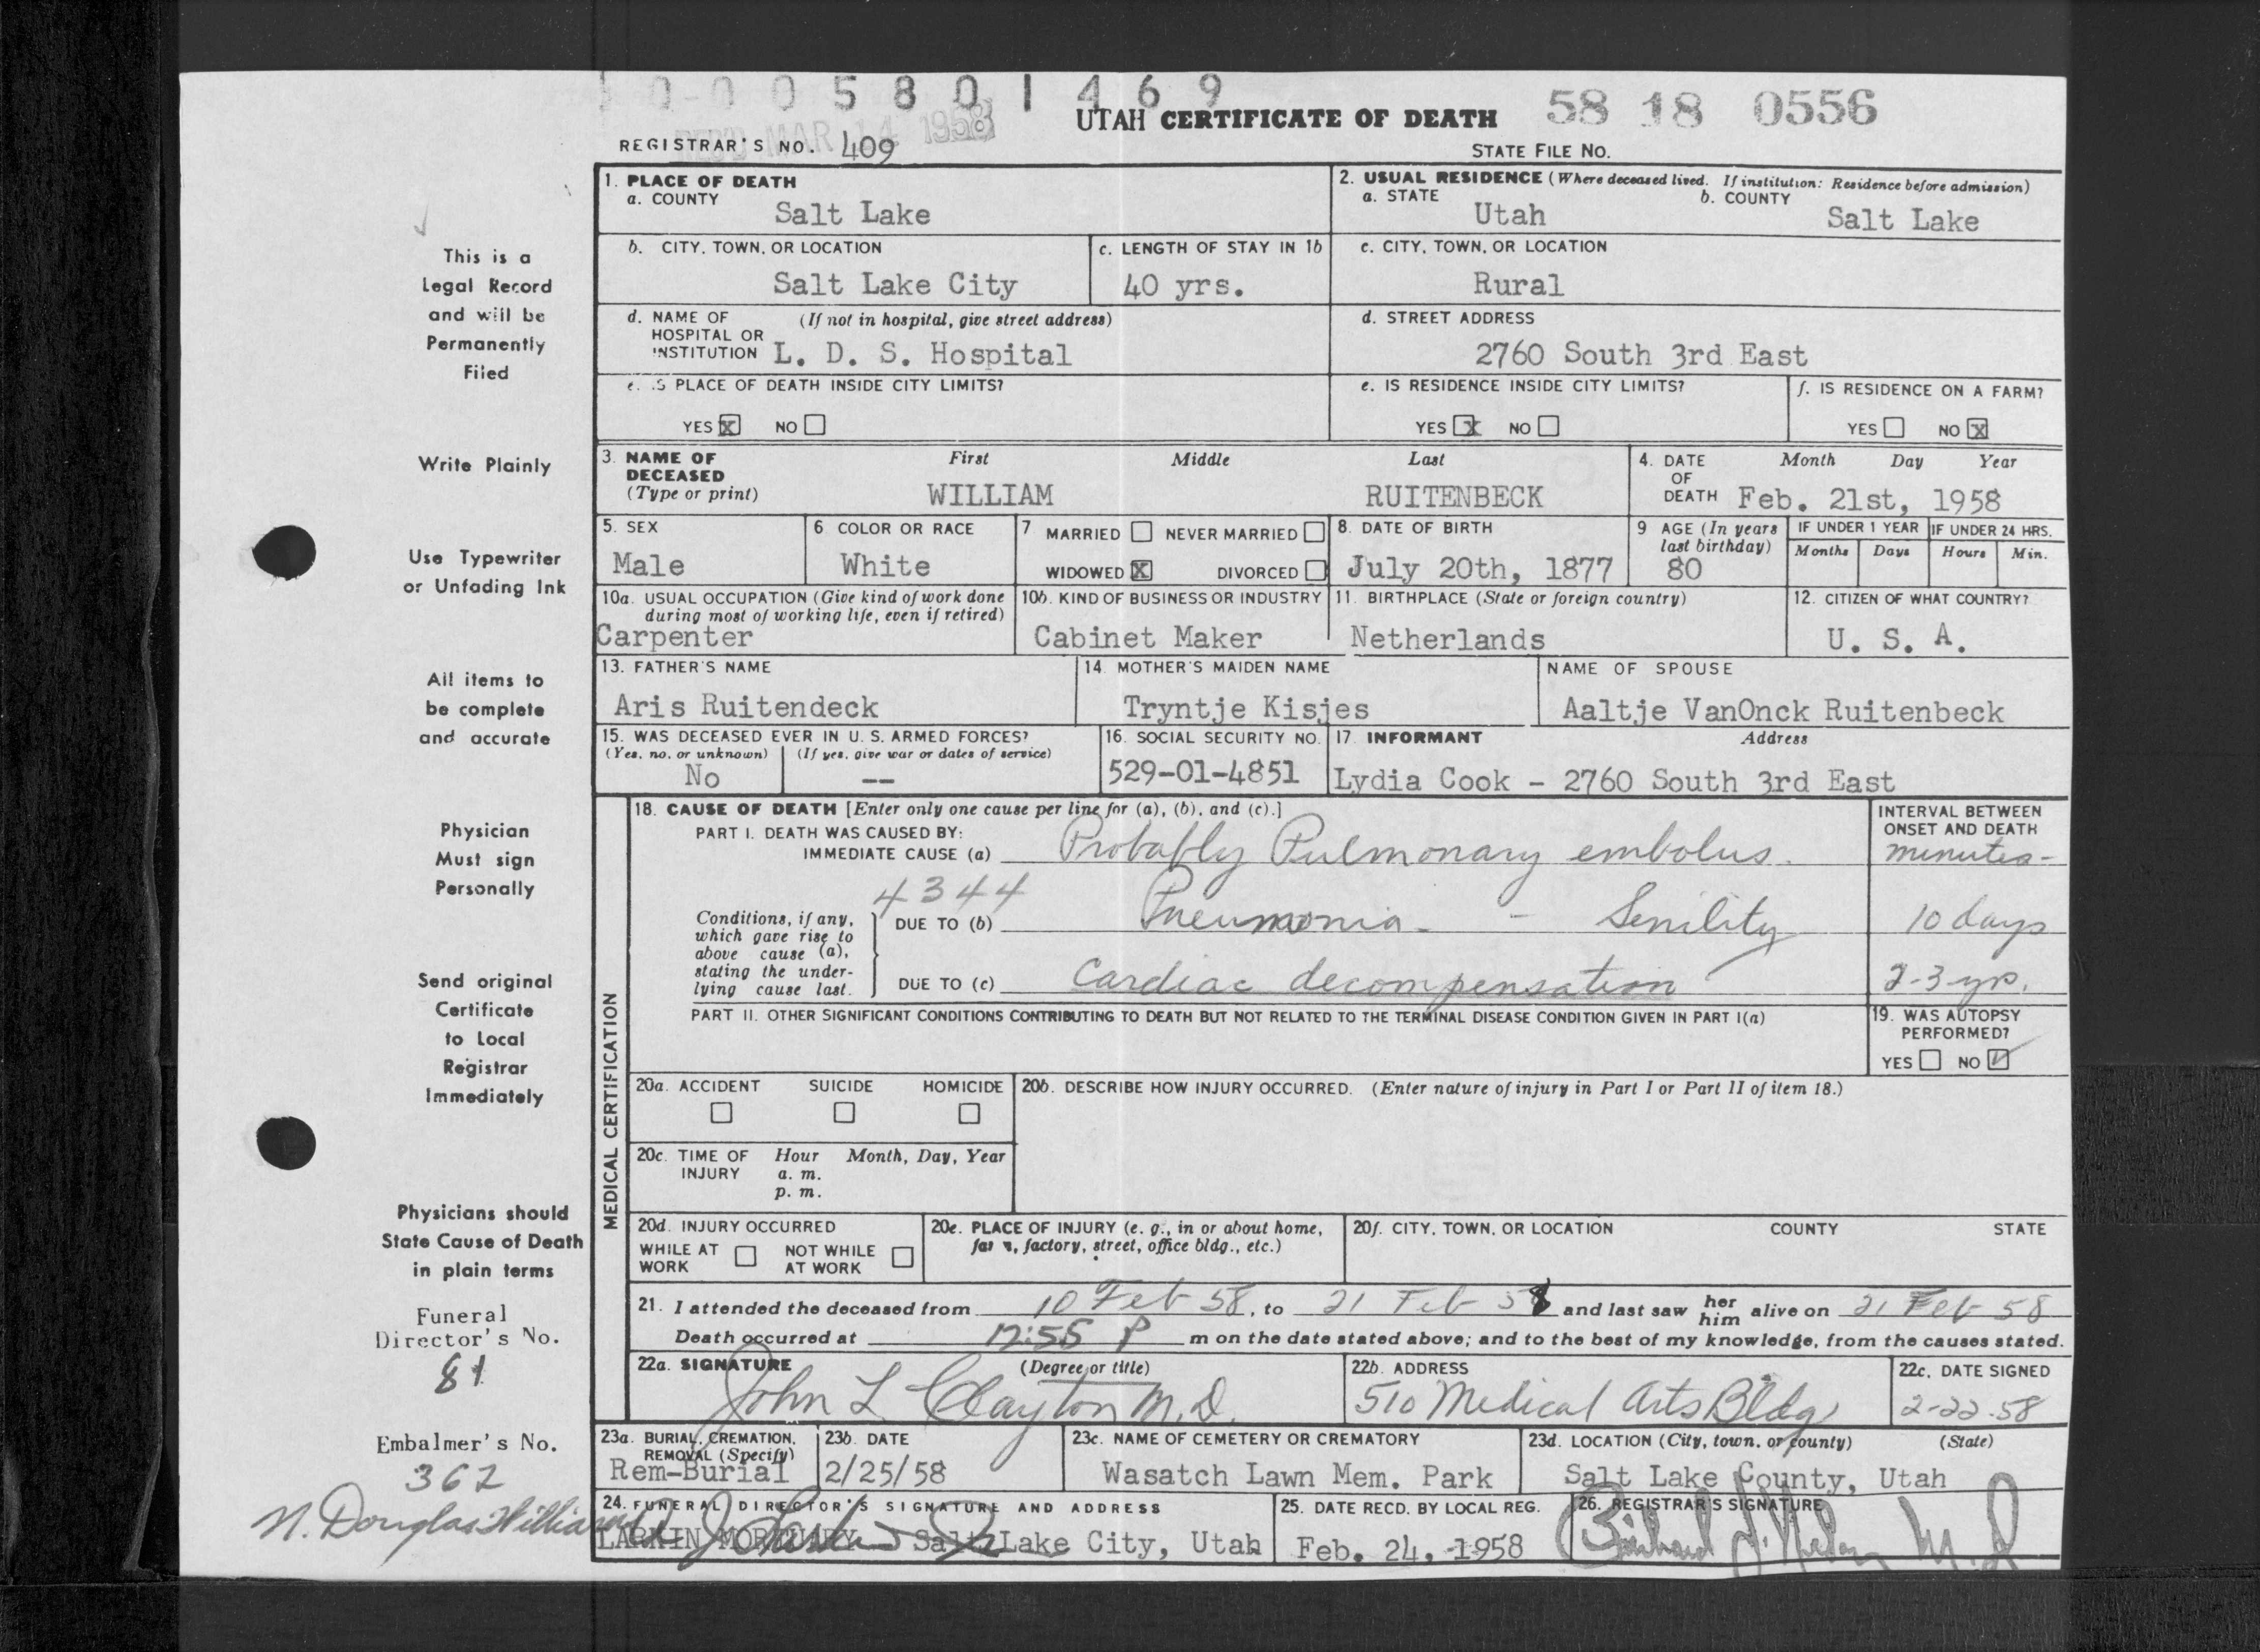 0-0 0 5 8 0 1 4 6 9
REC'D MAR 14 1958
UTAH CERTIFICATE OF DEATH 58 18 0556
REGISTRAR'S NO. 409 STATE FILE NO.
1. PLACE OF DEATH
a. COUNTY Salt Lake
2. USUAL RESIDENCE (Where deceased lived. If institution: Residence before admission)
a. STATE Utah b. COUNTY Salt Lake
b. CITY, TOWN, OR LOCATION Salt Lake City
c. LENGTH OF STAY IN 1b 40 yrs.
c. CITY, TOWN, OR LOCATION Rural
d. NAME OF HOSPITAL OR INSTITUTION (If not in hospital, give street address) L. D. S. Hospital
d. STREET ADDRESS 2760 South 3rd East
e. IS PLACE OF DEATH INSIDE CITY LIMITS? YES X NO
e. IS RESIDENCE INSIDE CITY LIMITS? YES X NO
f. IS RESIDENCE ON A FARM? YES NO X
3. NAME OF DECEASED (Type or print) First Middle Last
WILLIAM RUITENBECK
4. DATE OF DEATH Month Day Year
Feb. 21st, 1958
5. SEX Male
6 COLOR OR RACE White
7 MARRIED NEVER MARRIED
WIDOWED X DIVORCED
8. DATE OF BIRTH July 20th, 1877
9 AGE (In years last birthday) 80
IF UNDER 1 YEAR Months Days
IF UNDER 24 HRS. Hours Min.
10a. USUAL OCCUPATION (Give kind of work done during most of working life, even if retired) Carpenter
10b. KIND OF BUSINESS OR INDUSTRY Cabinet Maker
11. BIRTHPLACE (State or foreign country) Netherlands
12. CITIZEN OF WHAT COUNTRY? U. S. A.
13. FATHER'S NAME Aris Ruitendeck
14. MOTHER'S MAIDEN NAME Tryntje Kisjes
NAME OF SPOUSE Aaltje VanOnck Ruitenbeck
15. WAS DECEASED EVER IN U. S. ARMED FORCES?
(Yes, no, or unknown) No (If yes, give war or dates of service) --
16. SOCIAL SECURITY NO. 529-01-4851
17. INFORMANT Address
Lydia Cook - 2760 South 3rd East
MEDICAL CERTIFICATION
18. CAUSE OF DEATH [Enter only one cause per line for (a), (b), and (c).]
INTERVAL BETWEEN ONSET AND DEATH
PART I. DEATH WAS CAUSED BY:
IMMEDIATE CAUSE (a) Probably Pulmonary embolus. minutes-
4344
Conditions, if any, which gave rise to above cause (a), stating the underlying cause last.
DUE TO (b) Pneumonia - Senility 10 days
DUE TO (c) Cardiac decompensation 2-3 yrs.
PART II. OTHER SIGNIFICANT CONDITIONS CONTRIBUTING TO DEATH BUT NOT RELATED TO THE TERMINAL DISEASE CONDITION GIVEN IN PART I(a)
19. WAS AUTOPSY PERFORMED?
YES NO ✓
20a. ACCIDENT SUICIDE HOMICIDE
20b. DESCRIBE HOW INJURY OCCURRED. (Enter nature of injury in Part I or Part II of item 18.)
20c. TIME OF INJURY Hour Month, Day, Year
a. m.
p. m.
20d. INJURY OCCURRED
WHILE AT WORK NOT WHILE AT WORK
20e. PLACE OF INJURY (e. g., in or about home, farm, factory, street, office bldg., etc.)
20f. CITY, TOWN, OR LOCATION COUNTY STATE
21. I attended the deceased from 10 Feb 58, to 21 Feb 58 and last saw her him alive on 21 Feb 58
Death occurred at 12:55 P m on the date stated above; and to the best of my knowledge, from the causes stated.
22a. SIGNATURE (Degree or title)
John L Clayton M.D.
22b. ADDRESS 510 Medical Arts Bldg
22c. DATE SIGNED 2-22-58
23a. BURIAL, CREMATION, REMOVAL (Specify) Rem-Burial
23b. DATE 2/25/58
23c. NAME OF CEMETERY OR CREMATORY Wasatch Lawn Mem. Park
23d. LOCATION (City, town, or county) (State)
Salt Lake County, Utah
24. FUNERAL DIRECTOR'S SIGNATURE AND ADDRESS
LARKIN MORTUARY Salt Lake City, Utah
25. DATE RECD. BY LOCAL REG. Feb. 24, 1958
26. REGISTRAR'S SIGNATURE
M.D.
This is a
Legal Record
and will be
Permanently
Filed
Write Plainly
Use Typewriter
or Unfading Ink
All items to
be complete
and accurate
Physician
Must sign
Personally
Send original
Certificate
to Local
Registrar
Immediately
Physicians should
State Cause of Death
in plain terms
Funeral
Director's No.
81
Embalmer's No.
362
N. Douglas Williams